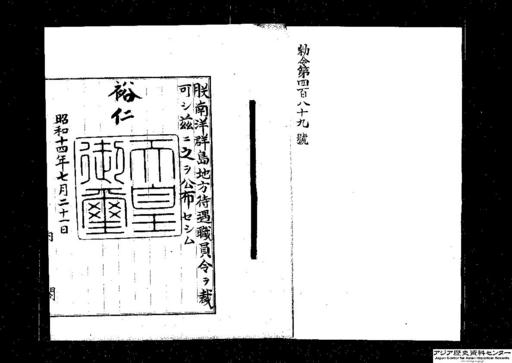 勅令第四百八十九號
朕南洋群島地方待遇職員令ヲ裁
可シ茲ニ之ヲ公布セシム
裕仁
天皇御璽
昭和十四年七月二十一日
内閣
アジア歴史資料センター
Japan Center for Asian Historical Records